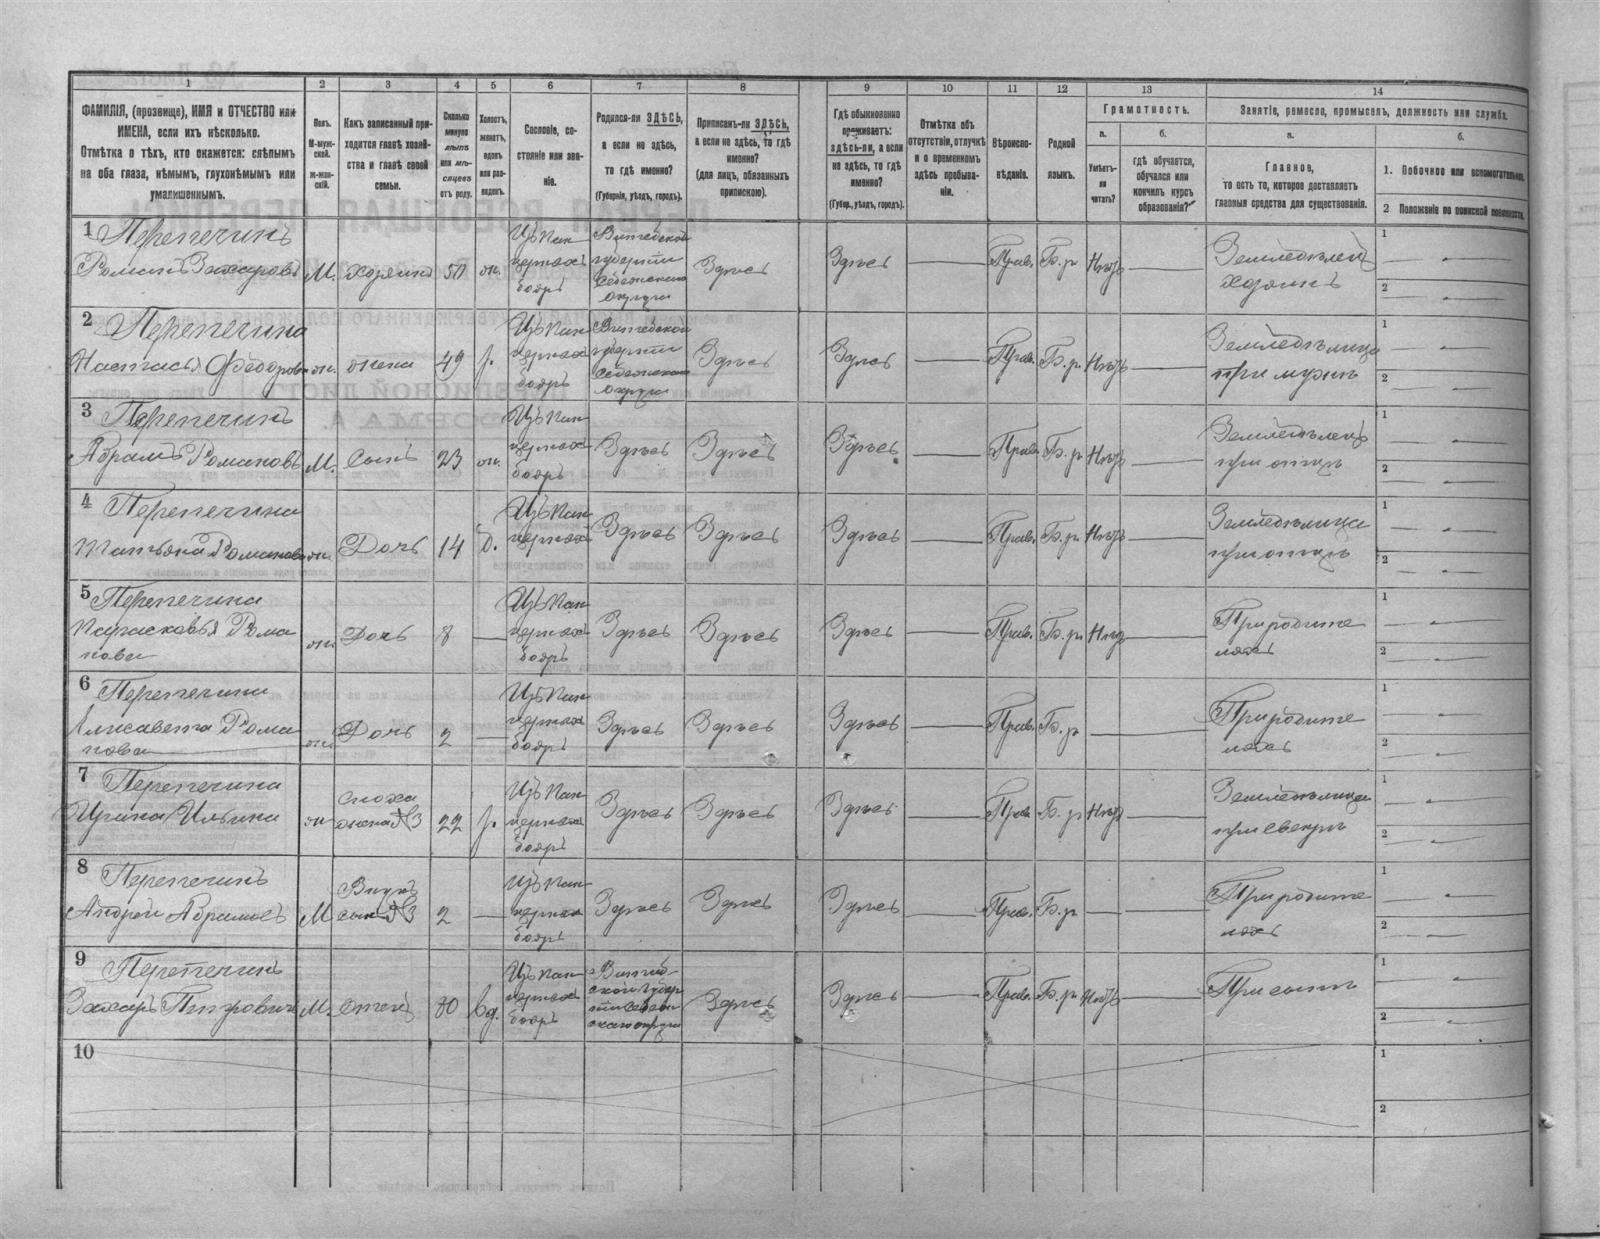 1
2
3
4
5
6
7
8
9
10
11
12
13
14
ФАМИЛІЯ, (прозвище), ИМЯ и ОТЧЕСТВО или
ИМЕНА, если ихъ нѣсколько.
Отмѣтка о тѣхъ, кто окажется: слѣпымъ
на оба глаза, нѣмымъ, глухонѣмымъ или
умалишеннымъ.
Полъ.
М-муж-
ской.
Ж-жен-
скій.
Какъ записанный при-
ходится главѣ хозяй-
ства и главѣ своей
семьи.
Сколько
минуло
лѣтъ
или мѣ-
сяцевъ
отъ роду.
Холостъ,
женатъ,
вдовъ
или раз-
веденъ.
Сословіе, со-
стояніе или зва-
ніе.
Родился-ли ЗДѢСЬ,
а если не здѣсь,
то гдѣ именно?
(Губернія, уѣздъ, городъ).
Приписанъ-ли ЗДѢСЬ,
а если не здѣсь, то гдѣ
именно?
(для лицъ, обязанныхъ
припискою).
Гдѣ обыкновенно
проживаетъ:
здѣсь-ли, а если
не здѣсь, то гдѣ
именно?
(Губер., уѣздъ, городъ).
Отмѣтка объ
отсутствіи, отлучкѣ
и о временномъ
здѣсь пребыва-
ніи.
Вѣроиспо-
вѣданіе.
Родной
языкъ.
Грамотность.
а.
б.
Умѣетъ-
ли
читать?
гдѣ обучается,
обучался или
кончилъ курсъ
образованія?
Занятіе, ремесло, промыселъ, должность или служба.
а.
б.
Главное,
то есть то, которое доставляетъ
главныя средства для существованія.
1. Побочное или вспомогательное.
2 Положеніе по воинской повинности.
1 Перепечинъ
Романъ Захаровъ М. хозяинъ 50 ж. Изъ пан
церныхъ
бояръ Витебской
губерніи
Себежскаго
округи Здѣсь Здѣсь Прав. Б.р. Нѣтъ Земледѣлец
хозяинъ 1 2
2 Перепечина
Настасья Федорова ж. жена 49 з. Изъ пан
церныхъ
бояръ Витебской
губерніи
Себежскаго
округи Здѣсь Здѣсь Прав. Б.р. Нѣтъ Земледѣлица
при мужѣ 1 2
3 Перепечинъ
Абрамъ Романовъ М. Сынъ 23 ж. Изъ пан
церныхъ
бояръ Здѣсь Здѣсь Здѣсь Прав. Б.р. Нѣтъ Земледѣлец
при отцѣ 1 2
4 Перепечина
Татьяна Романова ж. Дочь 14 д. Изъ пан
церныхъ
бояръ Здѣсь Здѣсь Здѣсь Прав. Б.р. Нѣтъ Земледѣлица
при отцѣ 1 2
5 Перепечина
Парасковья Рома
нова ж. Дочь 8 Изъ пан
церныхъ
бояръ Здѣсь Здѣсь Здѣсь Прав. Б.р. Нѣтъ При родите
ляхъ 1 2
6 Перепечина
Елисавета Рома
нова ж. Дочь 2 Изъ пан
церныхъ
бояръ Здѣсь Здѣсь Здѣсь Прав. Б.р. При родите
ляхъ 1 2
7 Перепечина
Ирина Ильина ж. сноха
жена №3 22 з. Изъ пан
церныхъ
бояръ Здѣсь Здѣсь Здѣсь Прав. Б.р. Нѣтъ Земледѣлица
при свекрѣ 1 2
8 Перепечинъ
Андрей Абрамовъ М Внукъ
сынъ №3 2 Изъ пан
церныхъ
бояръ Здѣсь Здѣсь Здѣсь Прав. Б.р При родите
ляхъ 1 2
9 Перепечинъ
Захаръ Петровичъ М. отецъ 80 вд. Изъ пан
церныхъ
бояръ Витеб-
ской губер
ніи Себеж
скаго округи Здѣсь Здѣсь Прав. Б.р. Нѣтъ При сынѣ 1 2
10 1 2